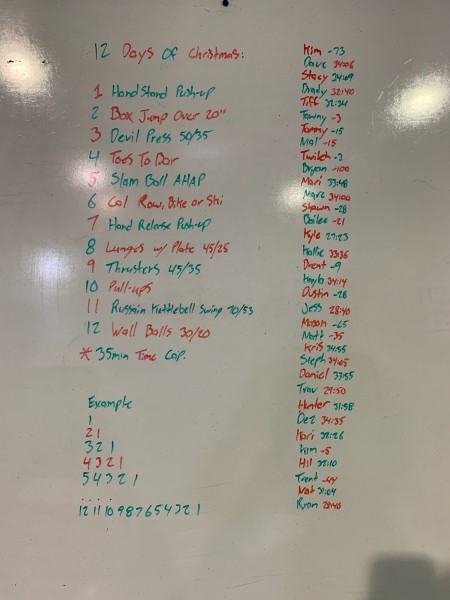 12 Days of Christmas:
1 Hand Stand Push-up
2 Box Jump Over 20"
3 Devil Press 50/35
4 Toes To Bar
5 Slam Ball AHAP
6 Cal Row, Bike or Ski
7 Hand Release Push-up
8 Lunges w/ Plate 45/25
9 Thrusters 45/35
10 Pull-ups
11 Russain Kettlebell Swing 70/53
12 Wall Balls 30/20
* 35min Time Cap.
Example
1
2 1
3 2 1
4 3 2 1
5 4 3 2 1
. . . .
12 11 10 9 8 7 6 5 4 3 2 1
Kim -73
Dave 34:06
Stacy 34:09
Brady 32:40
Tiff 32:34
Tawny -3
Tommy -15
Mal -15
Twitch -3
Bryan -100
Mari 33:48
Marc 34:00
Shawn -28
Bailee -21
Kyle 27:23
Hallie 33:36
Brent -9
Kayla 34:14
Dustin -28
Jess 28:40
Mason -65
Matt -35
Kris 34:55
Steph 34:05
Daniel 33:55
Trav 29:50
Hunter 31:58
Dez 34:35
Kari 32:26
Kim -5
Hil 32:10
Trent -44
Nat 31:04
Ryan